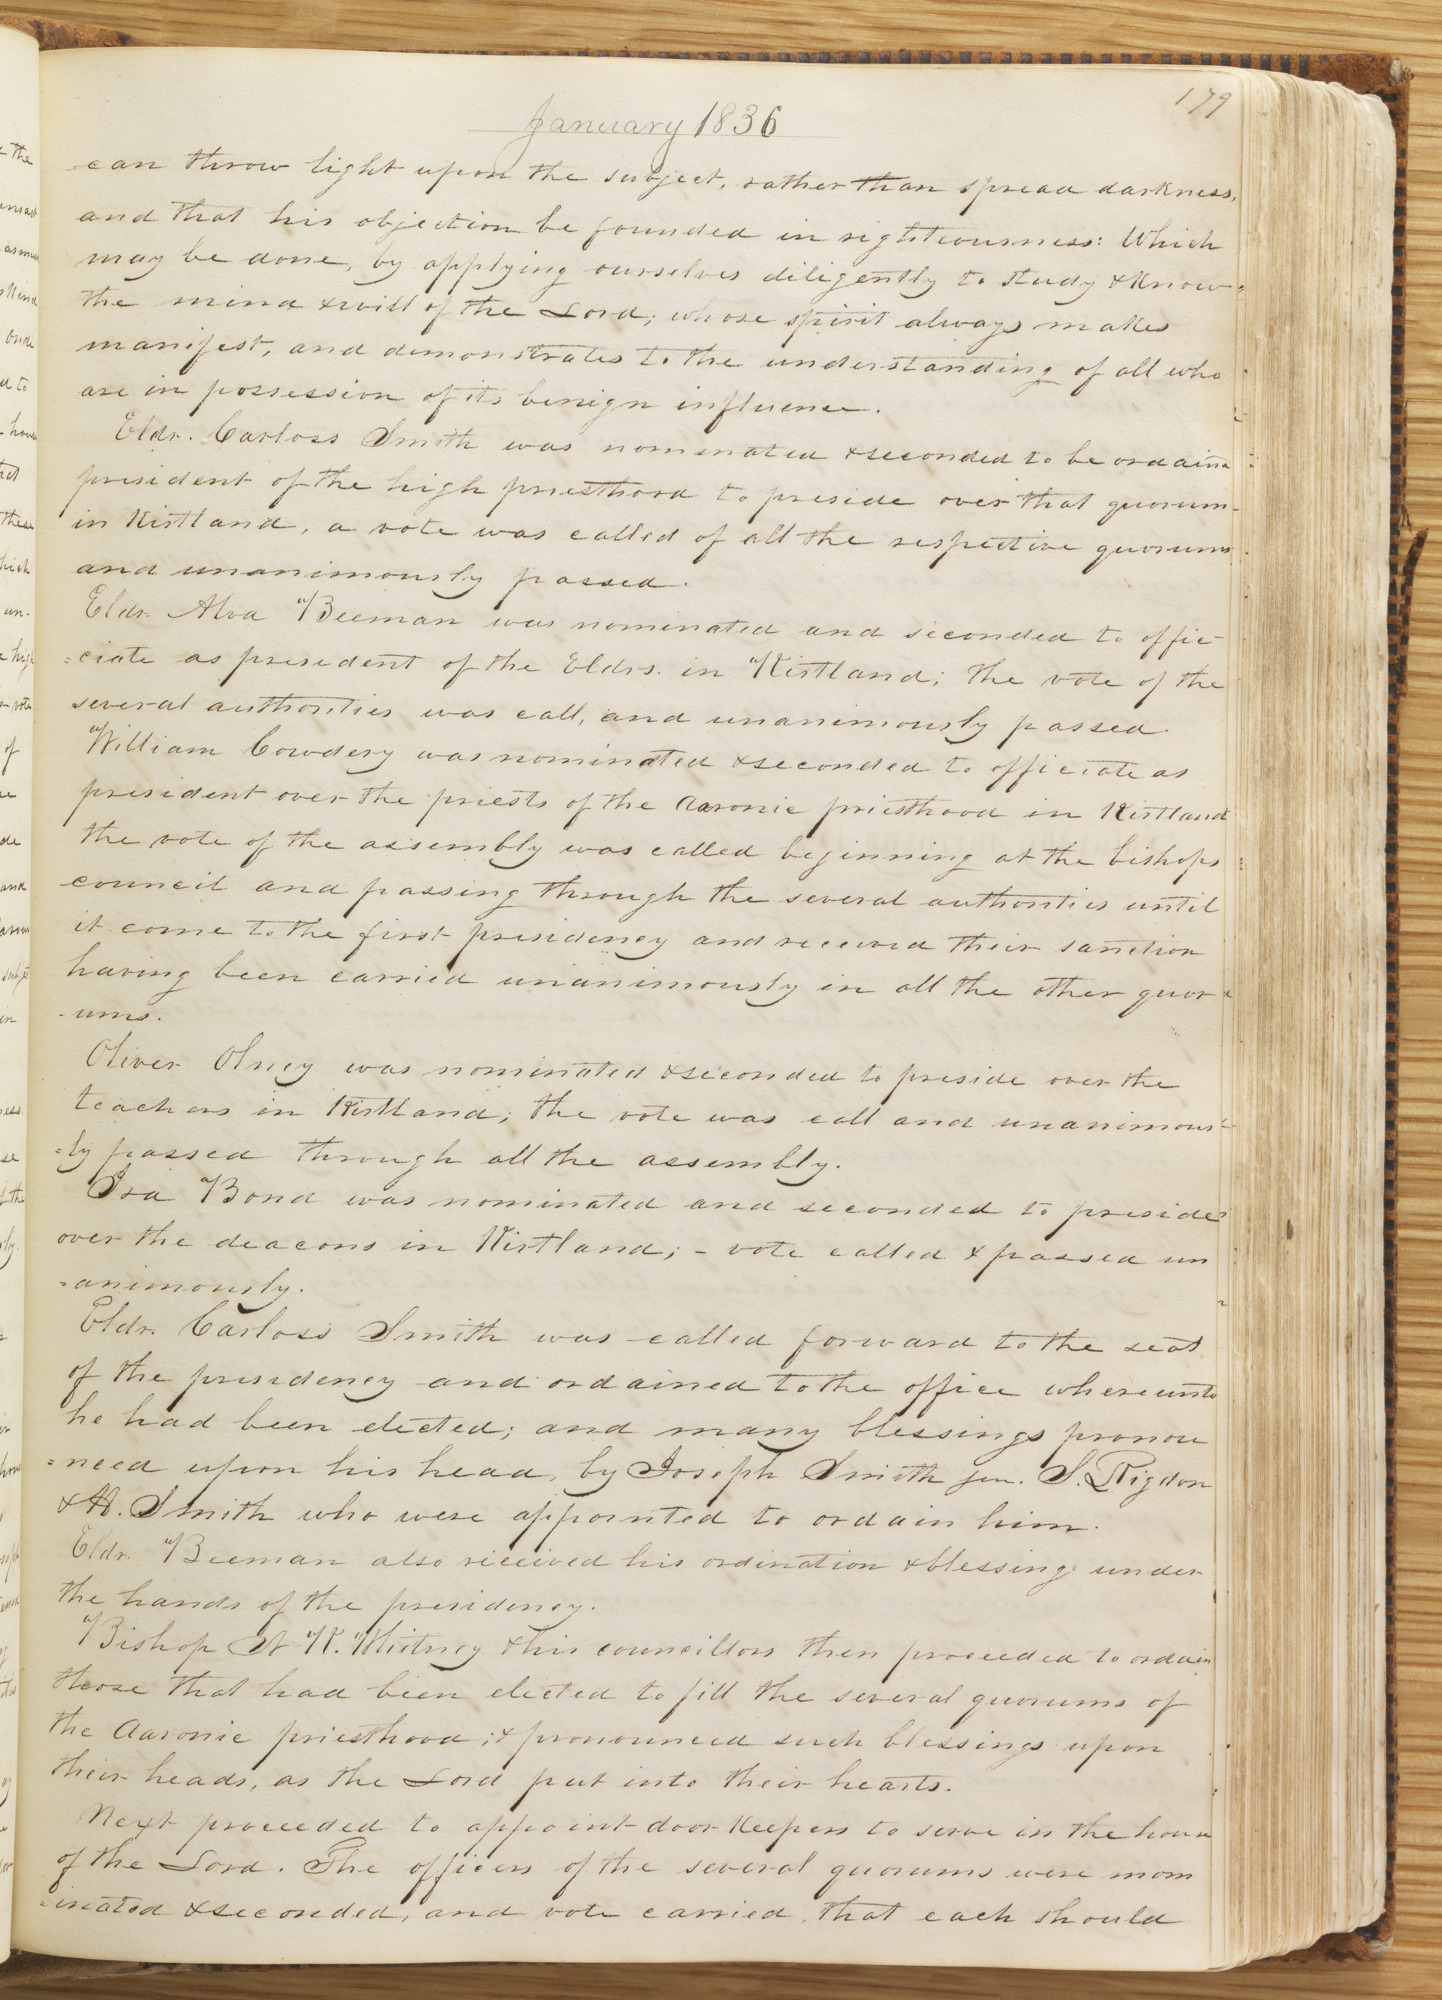 179
January 1836
can throw light upon the subject, rather than spread darkness,
and that his objection be founded in righteousness: Which
may be done, by applying ourselves diligently to study & know-
the mind & will of the Lord; whose spirit always makes
manifest, and demonstrates to the understanding of all who
are in possession of its benign influence.
Eldr. Carloss Smith was nominated & seconded to be ordaind
president of the high priesthood to preside over that quorum
in Kirtland, a vote was called of all the respective quorums
and unanimously passed.
Eldr. Alva Beeman was nominated and seconded to offic-
=ciate as president of the Eldrs. in Kirtland; the vote of the
several authorities was call, and unanimously passed.
William Cowdery was nominated & seconded to officiate as
president over the priests of the Aaronic priesthood in Kirtland
the vote of the assembly was called beginning at the bishops
council and passing through the several authorities until
it come to the first presidency and received their sanction
having been carried unanimously in all the other quor-
-ums.
Oliver Olney was nominated & seconded to preside over the
teachers in Kirtland; the vote was call and unanimous-
-ly passed through all the assembly.
Ira Bond was nominated and seconded to preside
over the deacons in Kirtland; - vote called & passed un
-animously.
Eldr. Carloss Smith was called forward to the seat
of the presidency and ordained to the office whereunto
he had been elected; and many blessings pronou
=nced upon his head, by Joseph Smith jun. S. Rigdon
& H. Smith who were appointed to ordain him.
Eldr. Beeman also received his ordination & blessing under
the hands of the presidency.
Bishop N K. Whitney & his councillors then proceeded to ordain
those that had been elected to fill the several quorums of
the Aaronic priesthood; & pronounced such blessings upon
their heads, as the Lord put into their hearts.
Next proceeded to appoint door keepers to serve in the house
of the Lord. The officers of the several quorums were nom
=inated & seconded, and vote carried, that each should